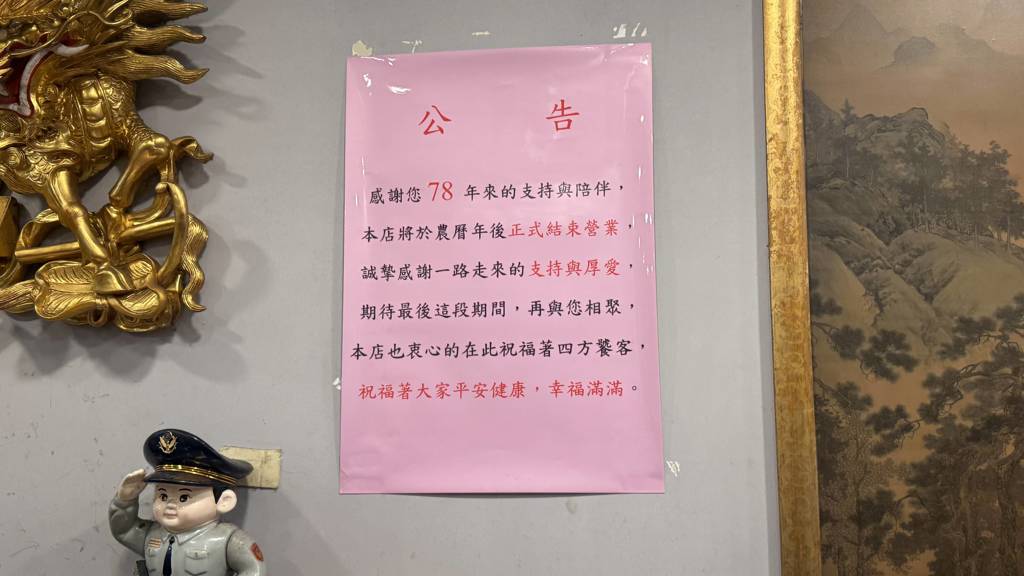 公 告
感謝您 78 年來的支持與陪伴，
本店將於農曆年後正式結束營業，
誠摯感謝一路走來的支持與厚愛，
期待最後這段期間，再與您相聚，
本店也衷心的在此祝福著四方饕客，
祝福著大家平安健康，幸福滿滿。